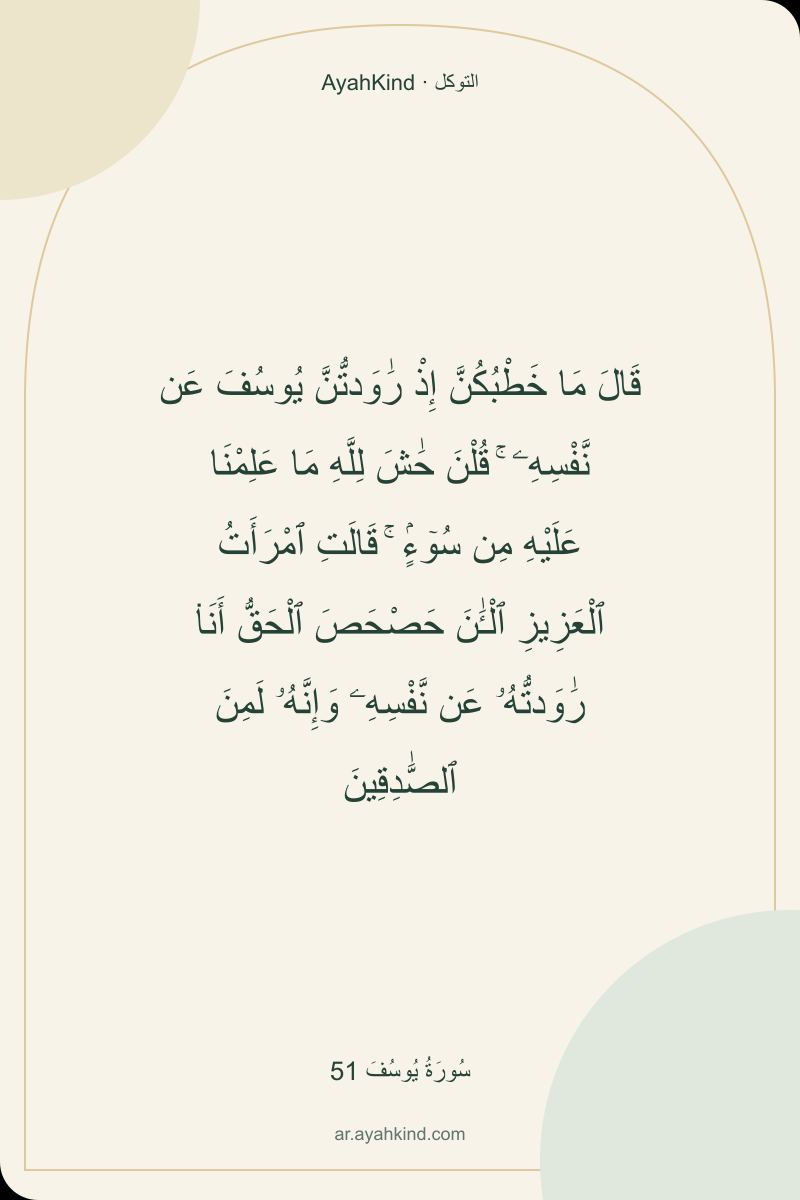 التوكل · AyahKind
قَالَ مَا خَطْبُكُنَّ إِذْ رَٰوَدتُّنَّ يُوسُفَ عَن
نَّفْسِهِۦ ۚ قُلْنَ حَٰشَ لِلَّهِ مَا عَلِمْنَا
عَلَيْهِ مِن سُوٓءٍۢ ۚ قَالَتِ ٱمْرَأَتُ
ٱلْعَزِيزِ ٱلْـَٰٔنَ حَصْحَصَ ٱلْحَقُّ أَنَا۠
رَٰوَدتُّهُۥ عَن نَّفْسِهِۦ وَإِنَّهُۥ لَمِنَ
ٱلصَّٰدِقِينَ
سُورَةُ يُوسُفَ 51
ar.ayahkind.com